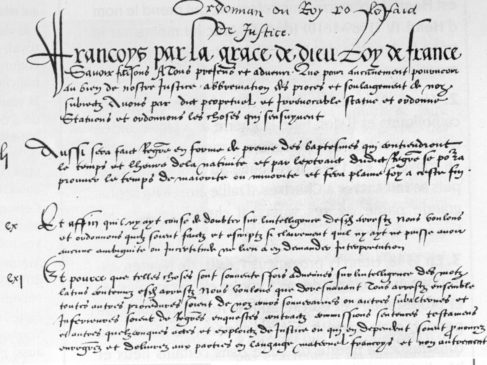 Ordonnan du Roy po le faict
De Justice.
Francoys par la grace de dieu Roy de france
Savoir faisons A tous presens et advenir Que pour aucunement pourveoir
au bien de nostre Justice abbreviation des proces et soulagement de noz
subiectz Avons par edict perpetuel et Irrevocable statue et ordonne
Statuons et ordonnons les choses qui sensuyvent
li Aussi sera faict Regre en forme de preuve des baptesmes qui contiendront
le temps et lheure de la nativite et par lextraict dudict Regre se po ra
prouver le temps de maiorite ou minorite et fera plaine foy a ceste fin
cx Et affin quil ny ayt cause de doubter sur lintelligence desdz arrestz Nous voulons
et ordonnons quilz soient faictz et escriptz si clairement quil ny ayt ne puisse avoir
aucune ambiguite ou Incertitude ne lieu a en demander Interpretation
cxi Et pource que telles choses sont souventesfois advenues sur lintelligence des motz
latins contenuz esdz arrestz Nous voulons que doresnavant Tous arrestz ensemble
toutes autres procedures soient de noz cours souveraines ou autres subalternes et
Inferieures soient de Regres enquestes contractz commissions sentences testamens
et autres quelzconques actes et exploictz de Justice ou qui en dependent soient pronncez
enregrez et delivrez aux parties en langaige maternel francoys et non autrement